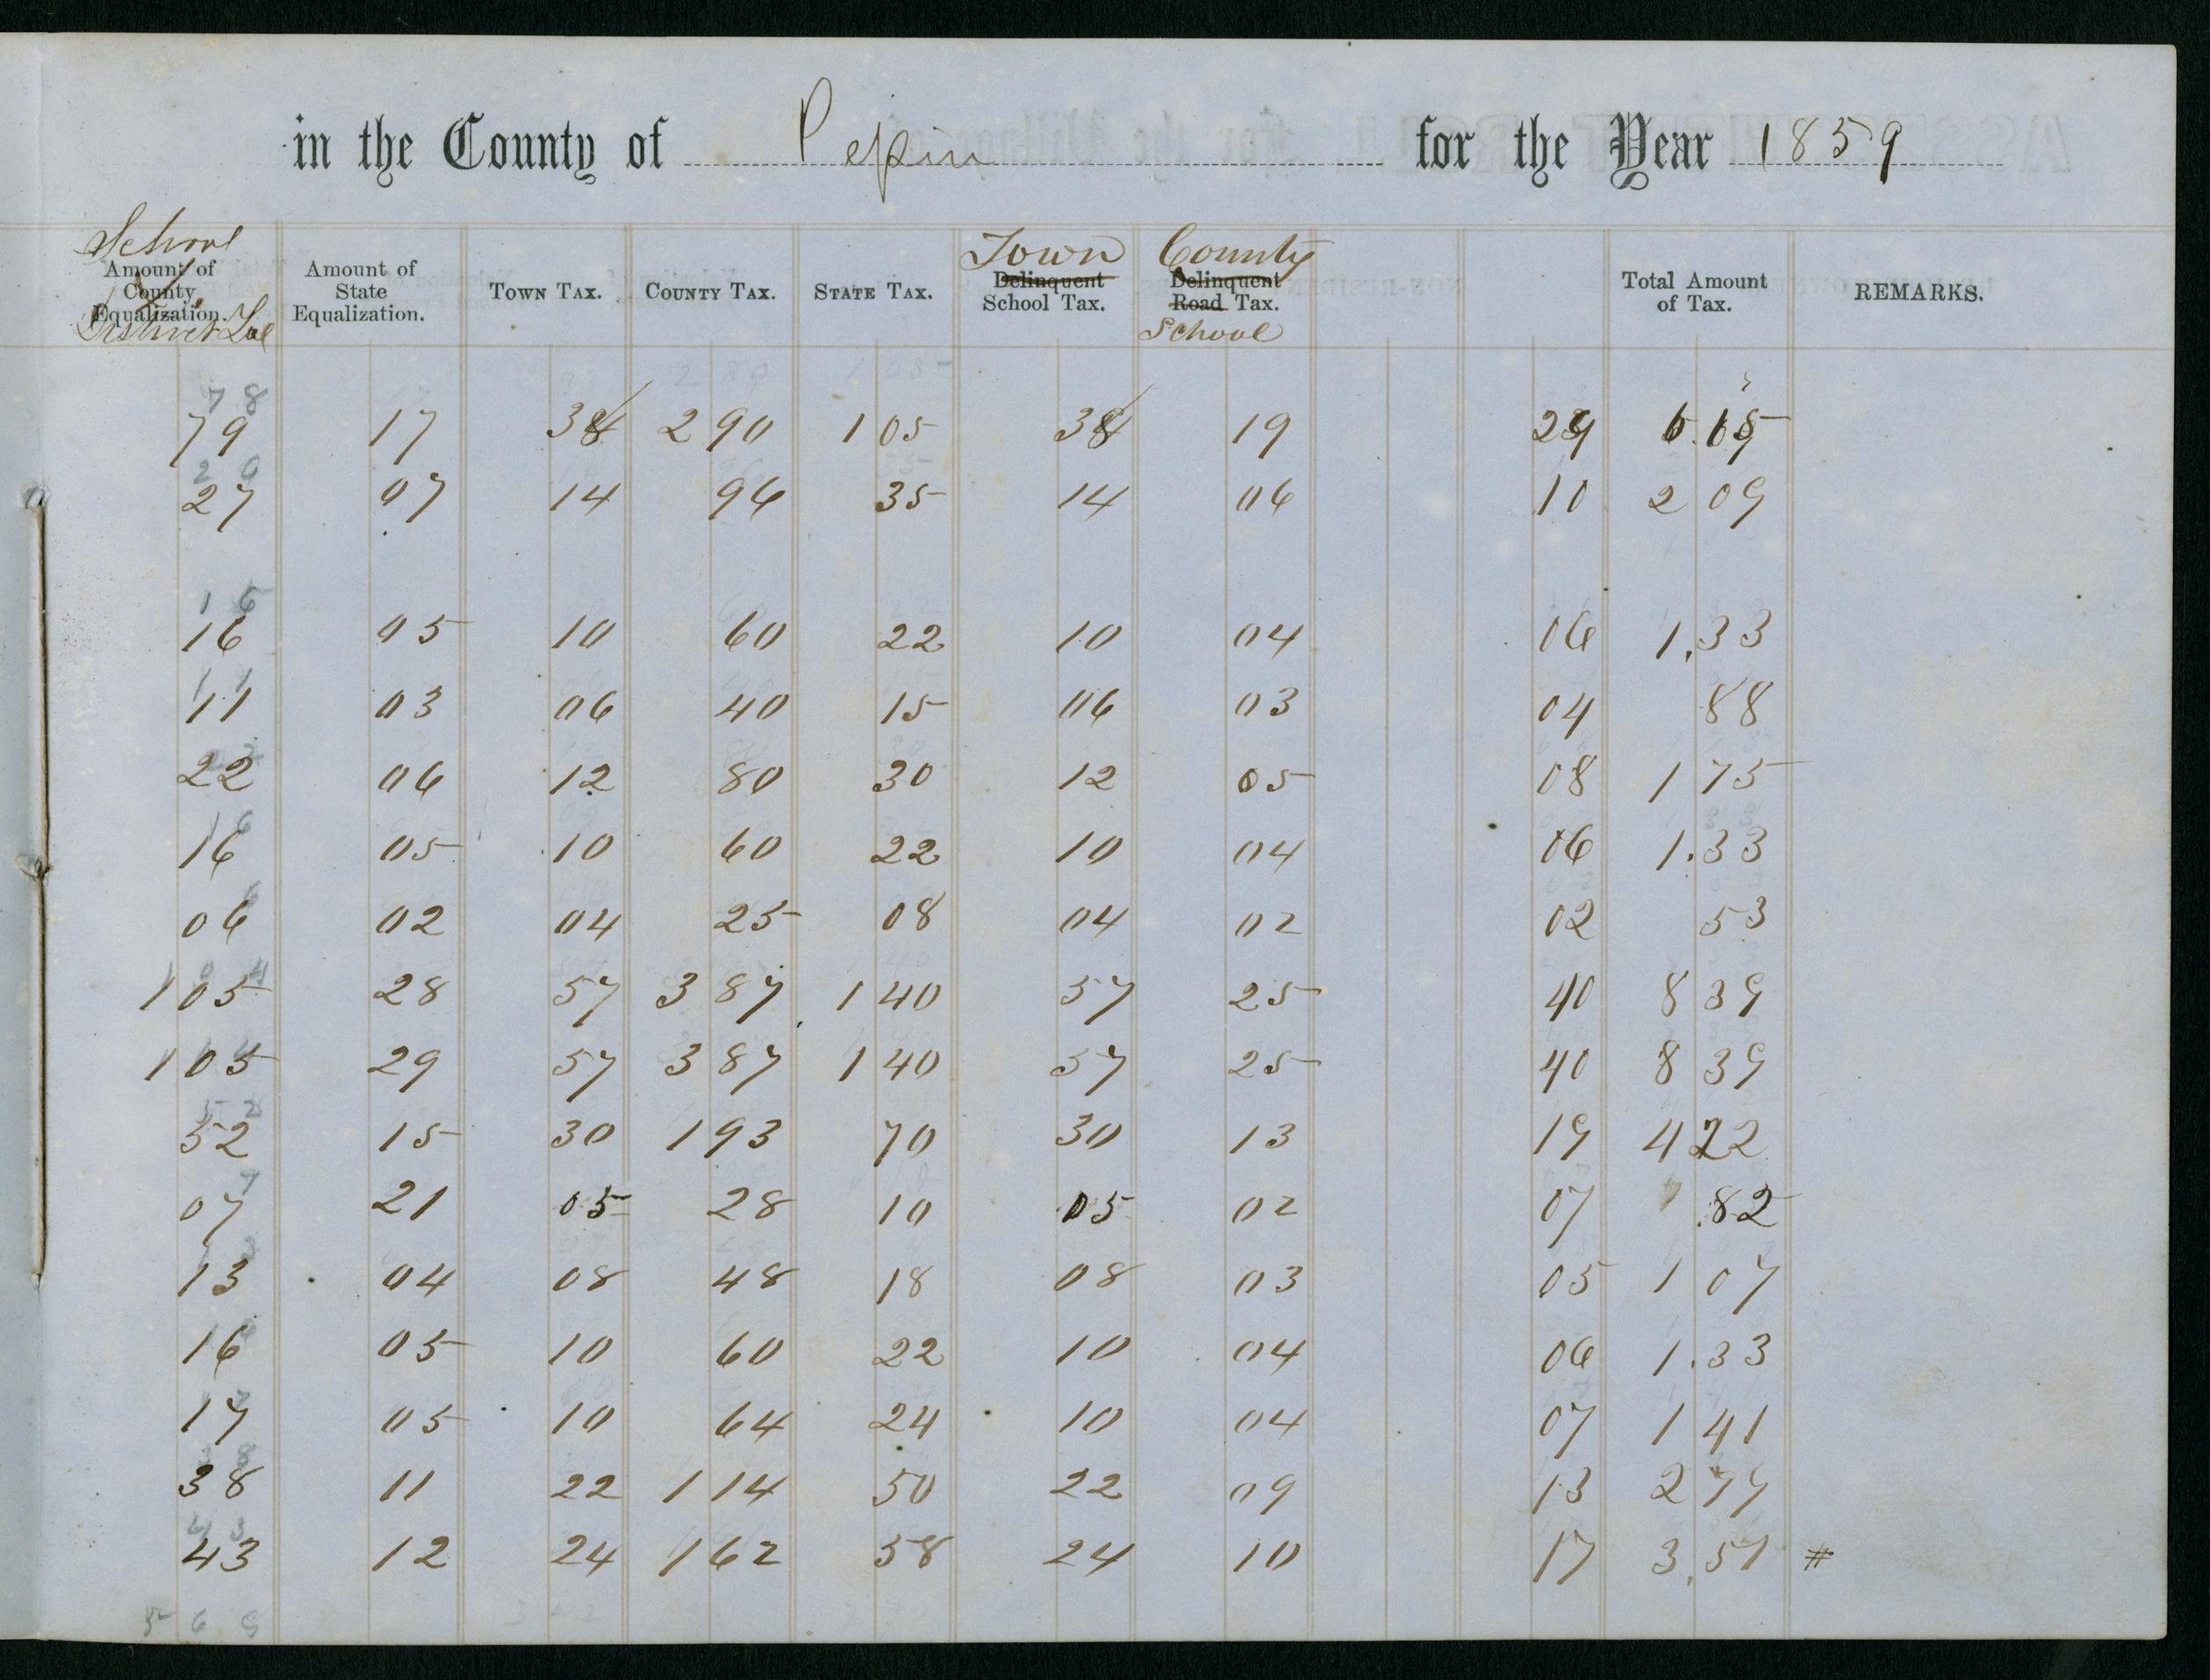 in the County of Pepin for the Year 1859
School Town County
Amount of County Equalization. Amount of State Equalization. TOWN TAX. COUNTY TAX. STATE TAX. Delinquent School Tax. Delinquent Road Tax. Total Amount of Tax. REMARKS.
District School
7 8
79 17 38 2 90 1 05 38 19 29 6.65
27 07 14 96 35 14 06 10 2 09
1 6
16 05 10 60 22 10 04 06 1.33
11 03 06 40 15 06 03 04 88
22 06 12 80 30 12 05 08 1 75
16 05 10 60 22 10 04 06 1.33
06 02 04 25 08 04 02 02 53
1 05 28 57 3 87 1 40 57 25 40 8 39
1 05 29 57 3 87 1 40 57 25 40 8 39
52 15 30 1 93 70 30 13 19 4 22
07 21 05 28 10 05 02 07 .82
13 04 08 48 18 08 03 05 1 07
16 05 10 60 22 10 04 06 1.33
17 05 10 64 24 10 04 07 1 41
38 11 22 1 14 50 22 09 13 2 79
4 3
43 12 24 1 62 58 24 10 17 3.51 #
5 6 9